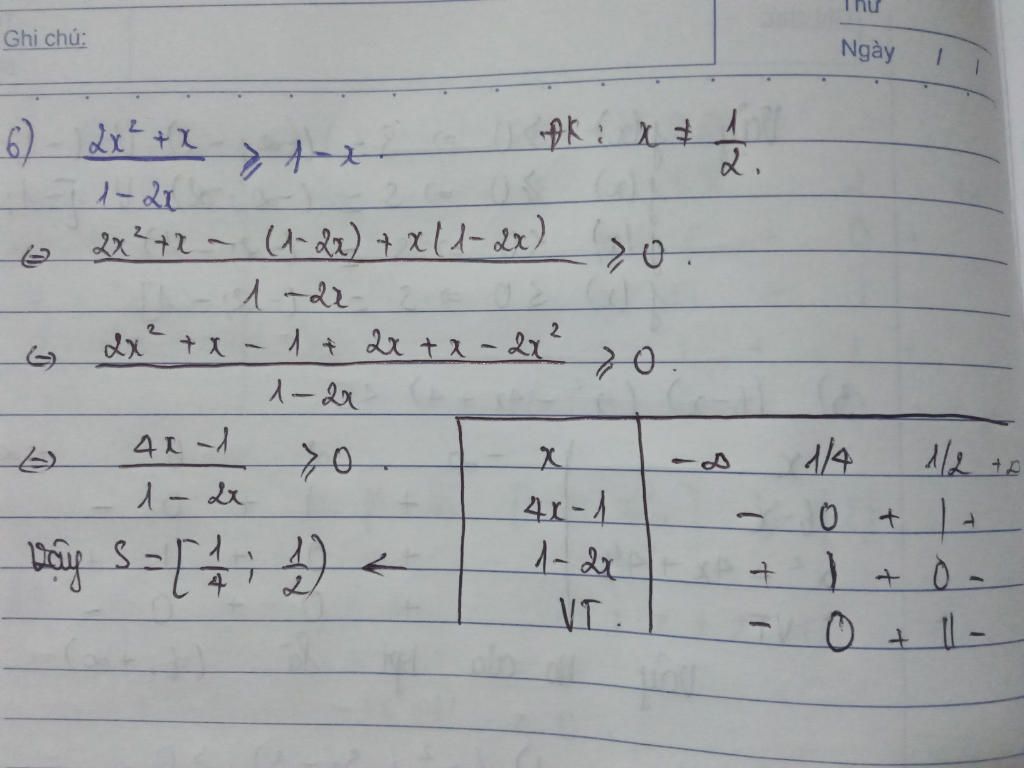 Ghi chú:
Thứ
Ngày / /
6) (2x² + x)/(1 - 2x) ≥ 1 - x. ĐK: x ≠ 1/2.
⇔ (2x² + x - (1-2x) + x(1-2x))/(1 - 2x) ≥ 0.
⇔ (2x² + x - 1 + 2x + x - 2x²)/(1 - 2x) ≥ 0.
⇔ (4x - 1)/(1 - 2x) ≥ 0.
x -∞ 1/4 1/2 +∞
4x - 1 - 0 + | +
1 - 2x + | + 0 -
VT. - 0 + || -
Vậy S = [1/4; 1/2) ←